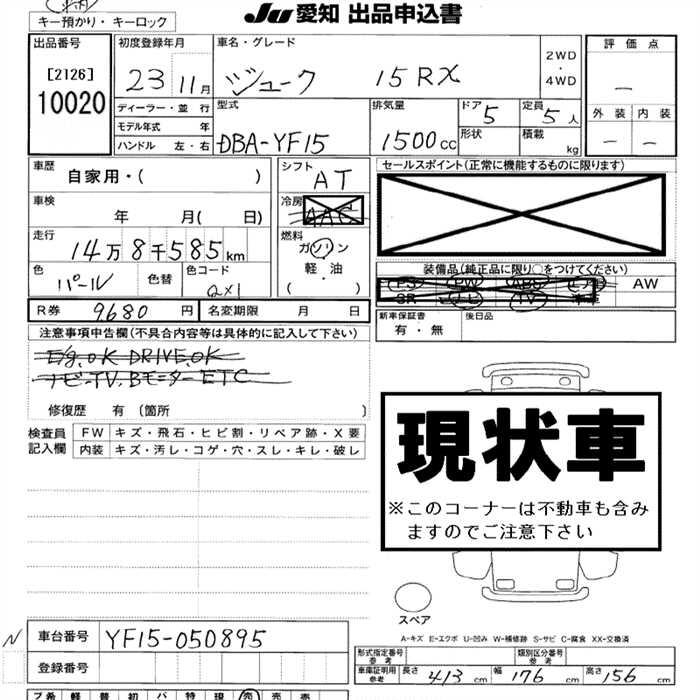 JU 愛知 出品申込書
キー預かり・キーロック
出品番号
[2126]
10020
初度登録年月
23 11月
車名・グレード
ジューク 15RX
2WD
・
4WD
評価点
—
外装 内装
— —
ディーラー・並行
モデル年式 年
ハンドル 左・右
型式
DBA-YF15
排気量
1500cc
ドア
5
定員
5人
形状
積載
kg
車歴
自家用・( )
車検
年 月( 日)
走行
14万8千585km
色
パール
色替
色コード
QX1
シフト
AT
冷房
AAC
燃料
ガソリン
軽油
( )
セールスポイント(正常に機能するものに限ります)
装備品(純正品に限り○をつけてください)
PS PW ABS エアB AW
SR ナビ TV 本革
新車保証書
有・無
後日品
R券 9680円
名変期限 月 日
注意事項申告欄(不具合内容等は具体的に記入して下さい)
E/g.OK DRIVE.OK
ナビ-TV.Bモニター ETC
修復歴 有 〔箇所 〕
検査員
記入欄
FW キズ・飛石・ヒビ割・リペア跡・X要
内装 キズ・汚レ・コゲ・穴・スレ・キレ・破レ
現状車
※このコーナーは不動車も含み
ますのでご注意下さい
スペア
A-キズ E-エクボ U-凹み W-補修跡 S-サビ C-腐食 XX-交換済
N
車台番号 YF15-050895
登録番号
形式指定番号
参考
類別区分番号
参考
車庫証明用
参考
長さ 413cm 幅 176cm 高さ 156cm